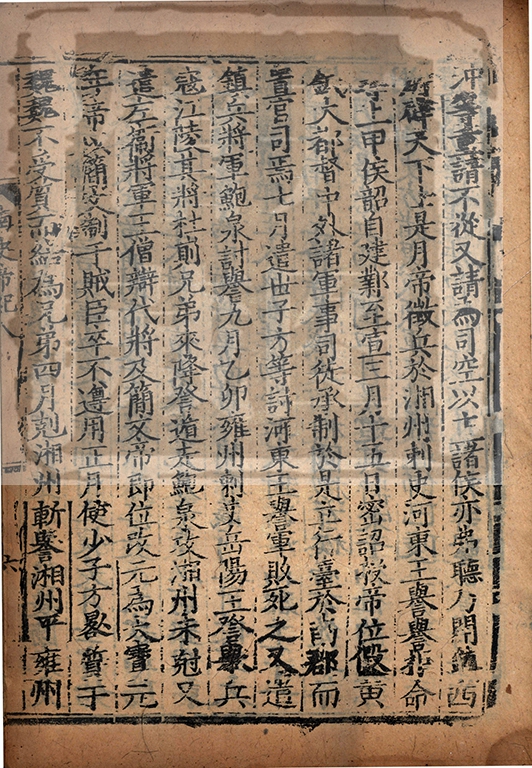 冲等重請不從又請為司空以主諸侯亦弗聽乃開鎮西
辟天下士是月帝徵兵於湘州刺史河東王譽譽拒命
上甲侯韶自建鄴至宣三月十五日密詔授帝位假黃
鉞大都督中外諸軍事司徒承制於是立行臺於南郡而
置官司焉七月遣世子方等討河東王譽軍敗死之又遣
鎮兵將軍鮑泉討譽九月乙卯雍州刺史岳陽王詧舉兵
寇江陵其將杜崱兄弟來降詧遁走鮑泉攻湘州未剋又
遣左衛將軍王僧辯代將及簡文帝即位改元為大寶元
年帝以簡文制于賊臣卒不遵用正月使少子方畧質于
魏魏不受質而結為兄弟四月剋湘州斬譽湘州平雍州
南史帝紀八
六